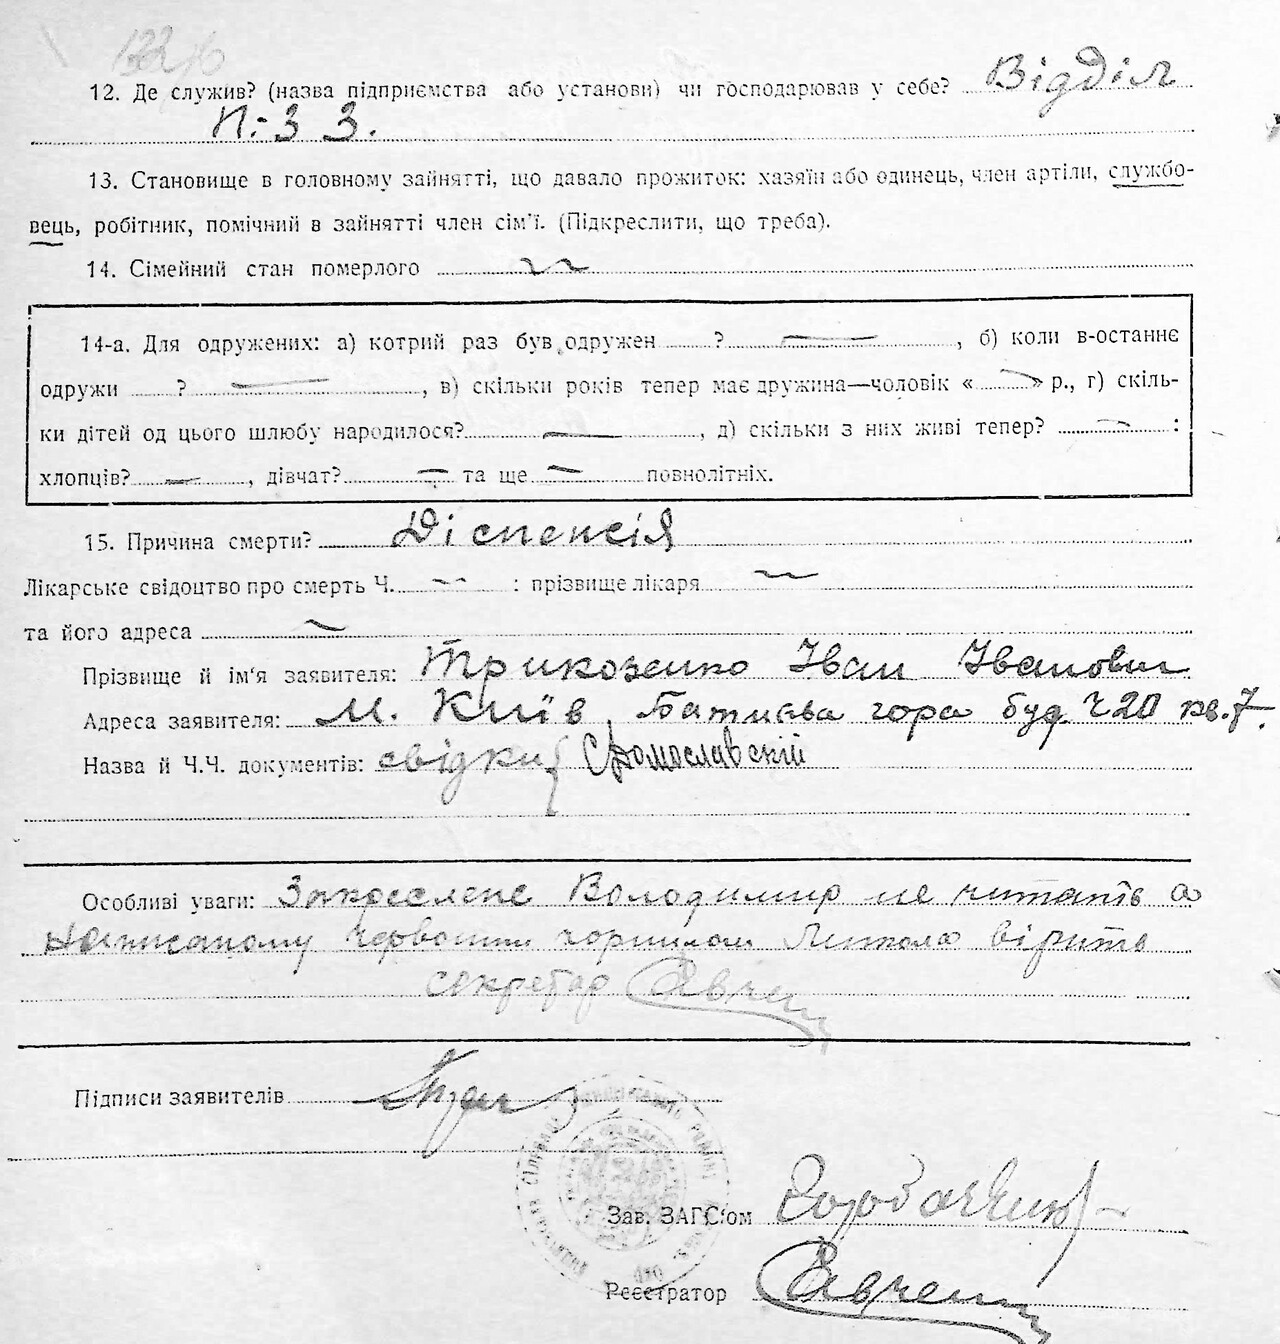 12. Де служив? (назва підприємства або установи) чи господарював у себе? Відділ
П.-3 3.
13. Становище в головному зайнятті, що давало прожиток: хазяїн або одинець, член артіли, службо-
вець, робітник, помічний в зайнятті член сім'ї. (Підкреслити, що треба).
14. Сімейний стан померлого
14-а. Для одружених: а) котрий раз був одружен ? — , б) коли в-останнє
одружи ? — , в) скільки років тепер має дружина—чоловік « — » р., г) скіль-
ки дітей од цього шлюбу народилося? — , д) скільки з них живі тепер? — :
хлопців? — , дівчат? — та ще — повнолітніх.
15. Причина смерти? Діспепсія
Лікарське свідоцтво про смерть Ч. — : прізвище лікаря —
та його адреса —
Прізвище й ім'я заявителя: Трикозенко Іван Іванович
Адреса заявителя: м. Київ, Батиєва гора буд. Ч 20 кв. 7.
Назва й Ч.Ч. документів: свідки
Особливі уваги: Закреслене Володимир не читать а
написаному червоним чорнилом Микола вірить
секретар Савчен
Підписи заявителів
Зав. ЗАГС'ом
Реєстратор Савчен